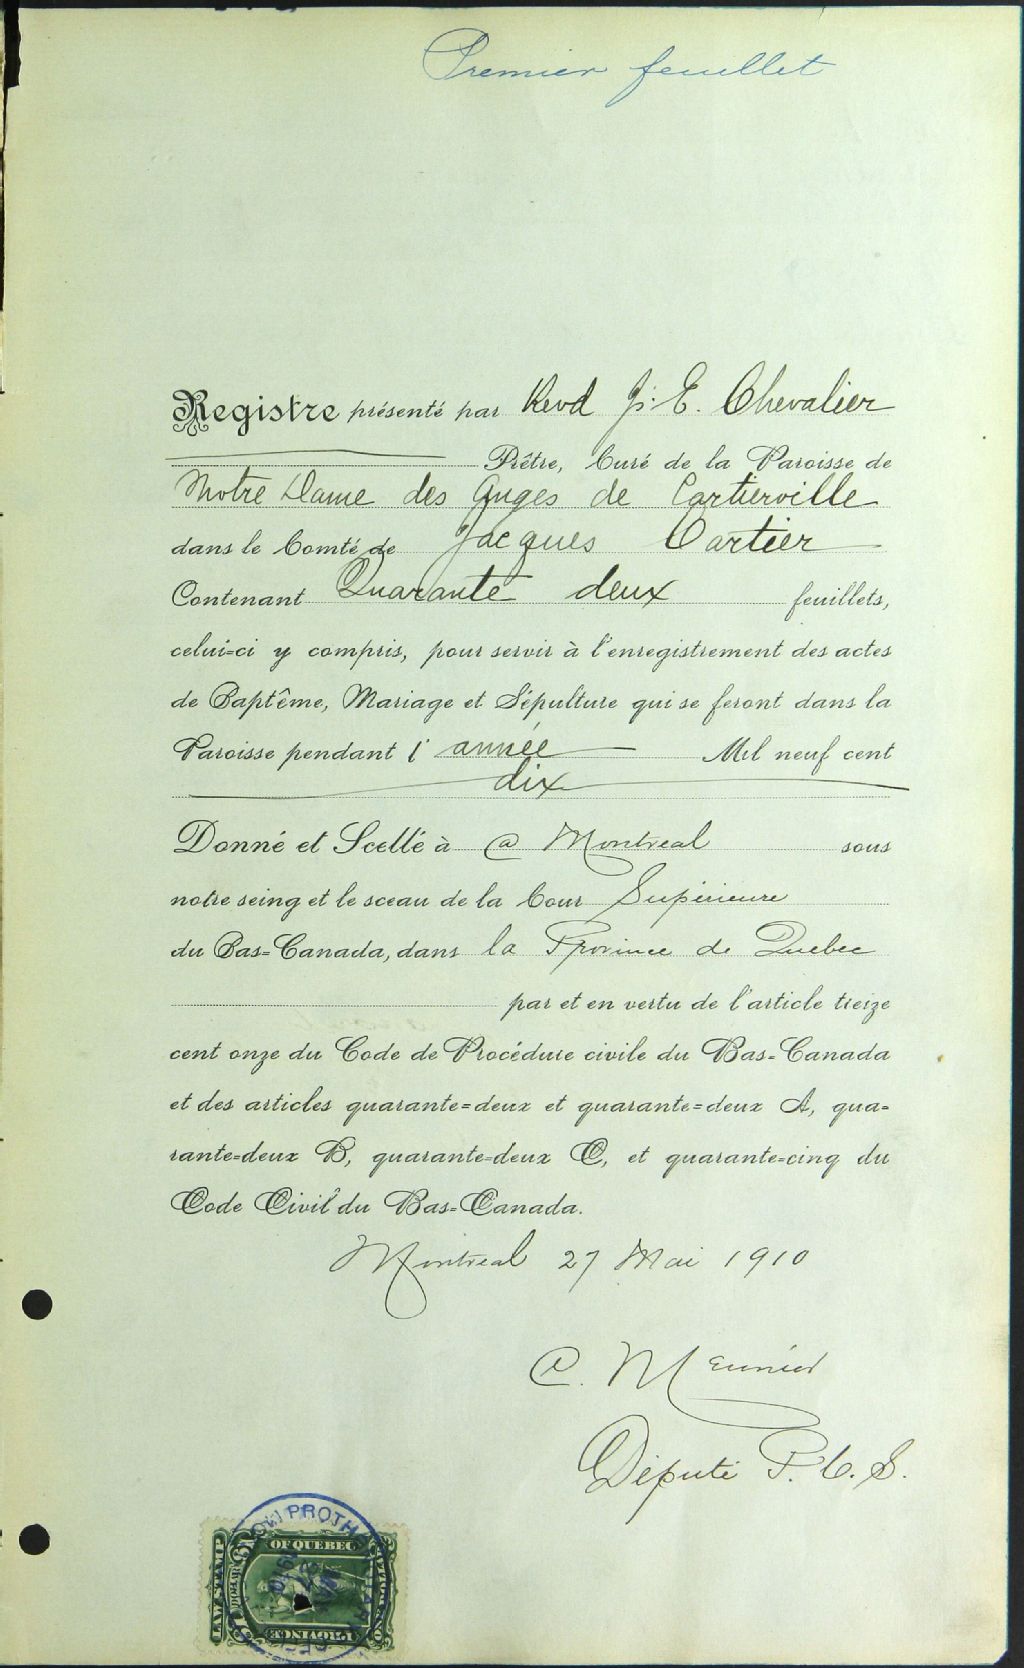 Premier feuillet
Registre présenté par Revd J. E. Chevalier
Prêtre, Curé de la Paroisse de
Notre Dame des Anges de Cartierville
dans le Comté de Jacques Cartier
Contenant Quarante deux feuillets,
celui-ci y compris, pour servir à l'enregistrement des actes
de Baptême, Mariage et Sépulture qui se feront dans la
Paroisse pendant l'année Mil neuf cent
dix
Donné et Scellé à @ Montreal sous
notre seing et le sceau de la Cour Supérieure
du Bas-Canada, dans la Province de Quebec
par et en vertu de l'article treize
cent onze du Code de Procédure civile du Bas-Canada
et des articles quarante-deux et quarante-deux A, qua-
rante-deux B, quarante-deux C, et quarante-cinq du
Code Civil du Bas-Canada.
Montreal 27 Mai 1910
A. Meunier
Député P. C. S.
PROTH
OF QUEBEC
LAW STAMP
PROVINCE